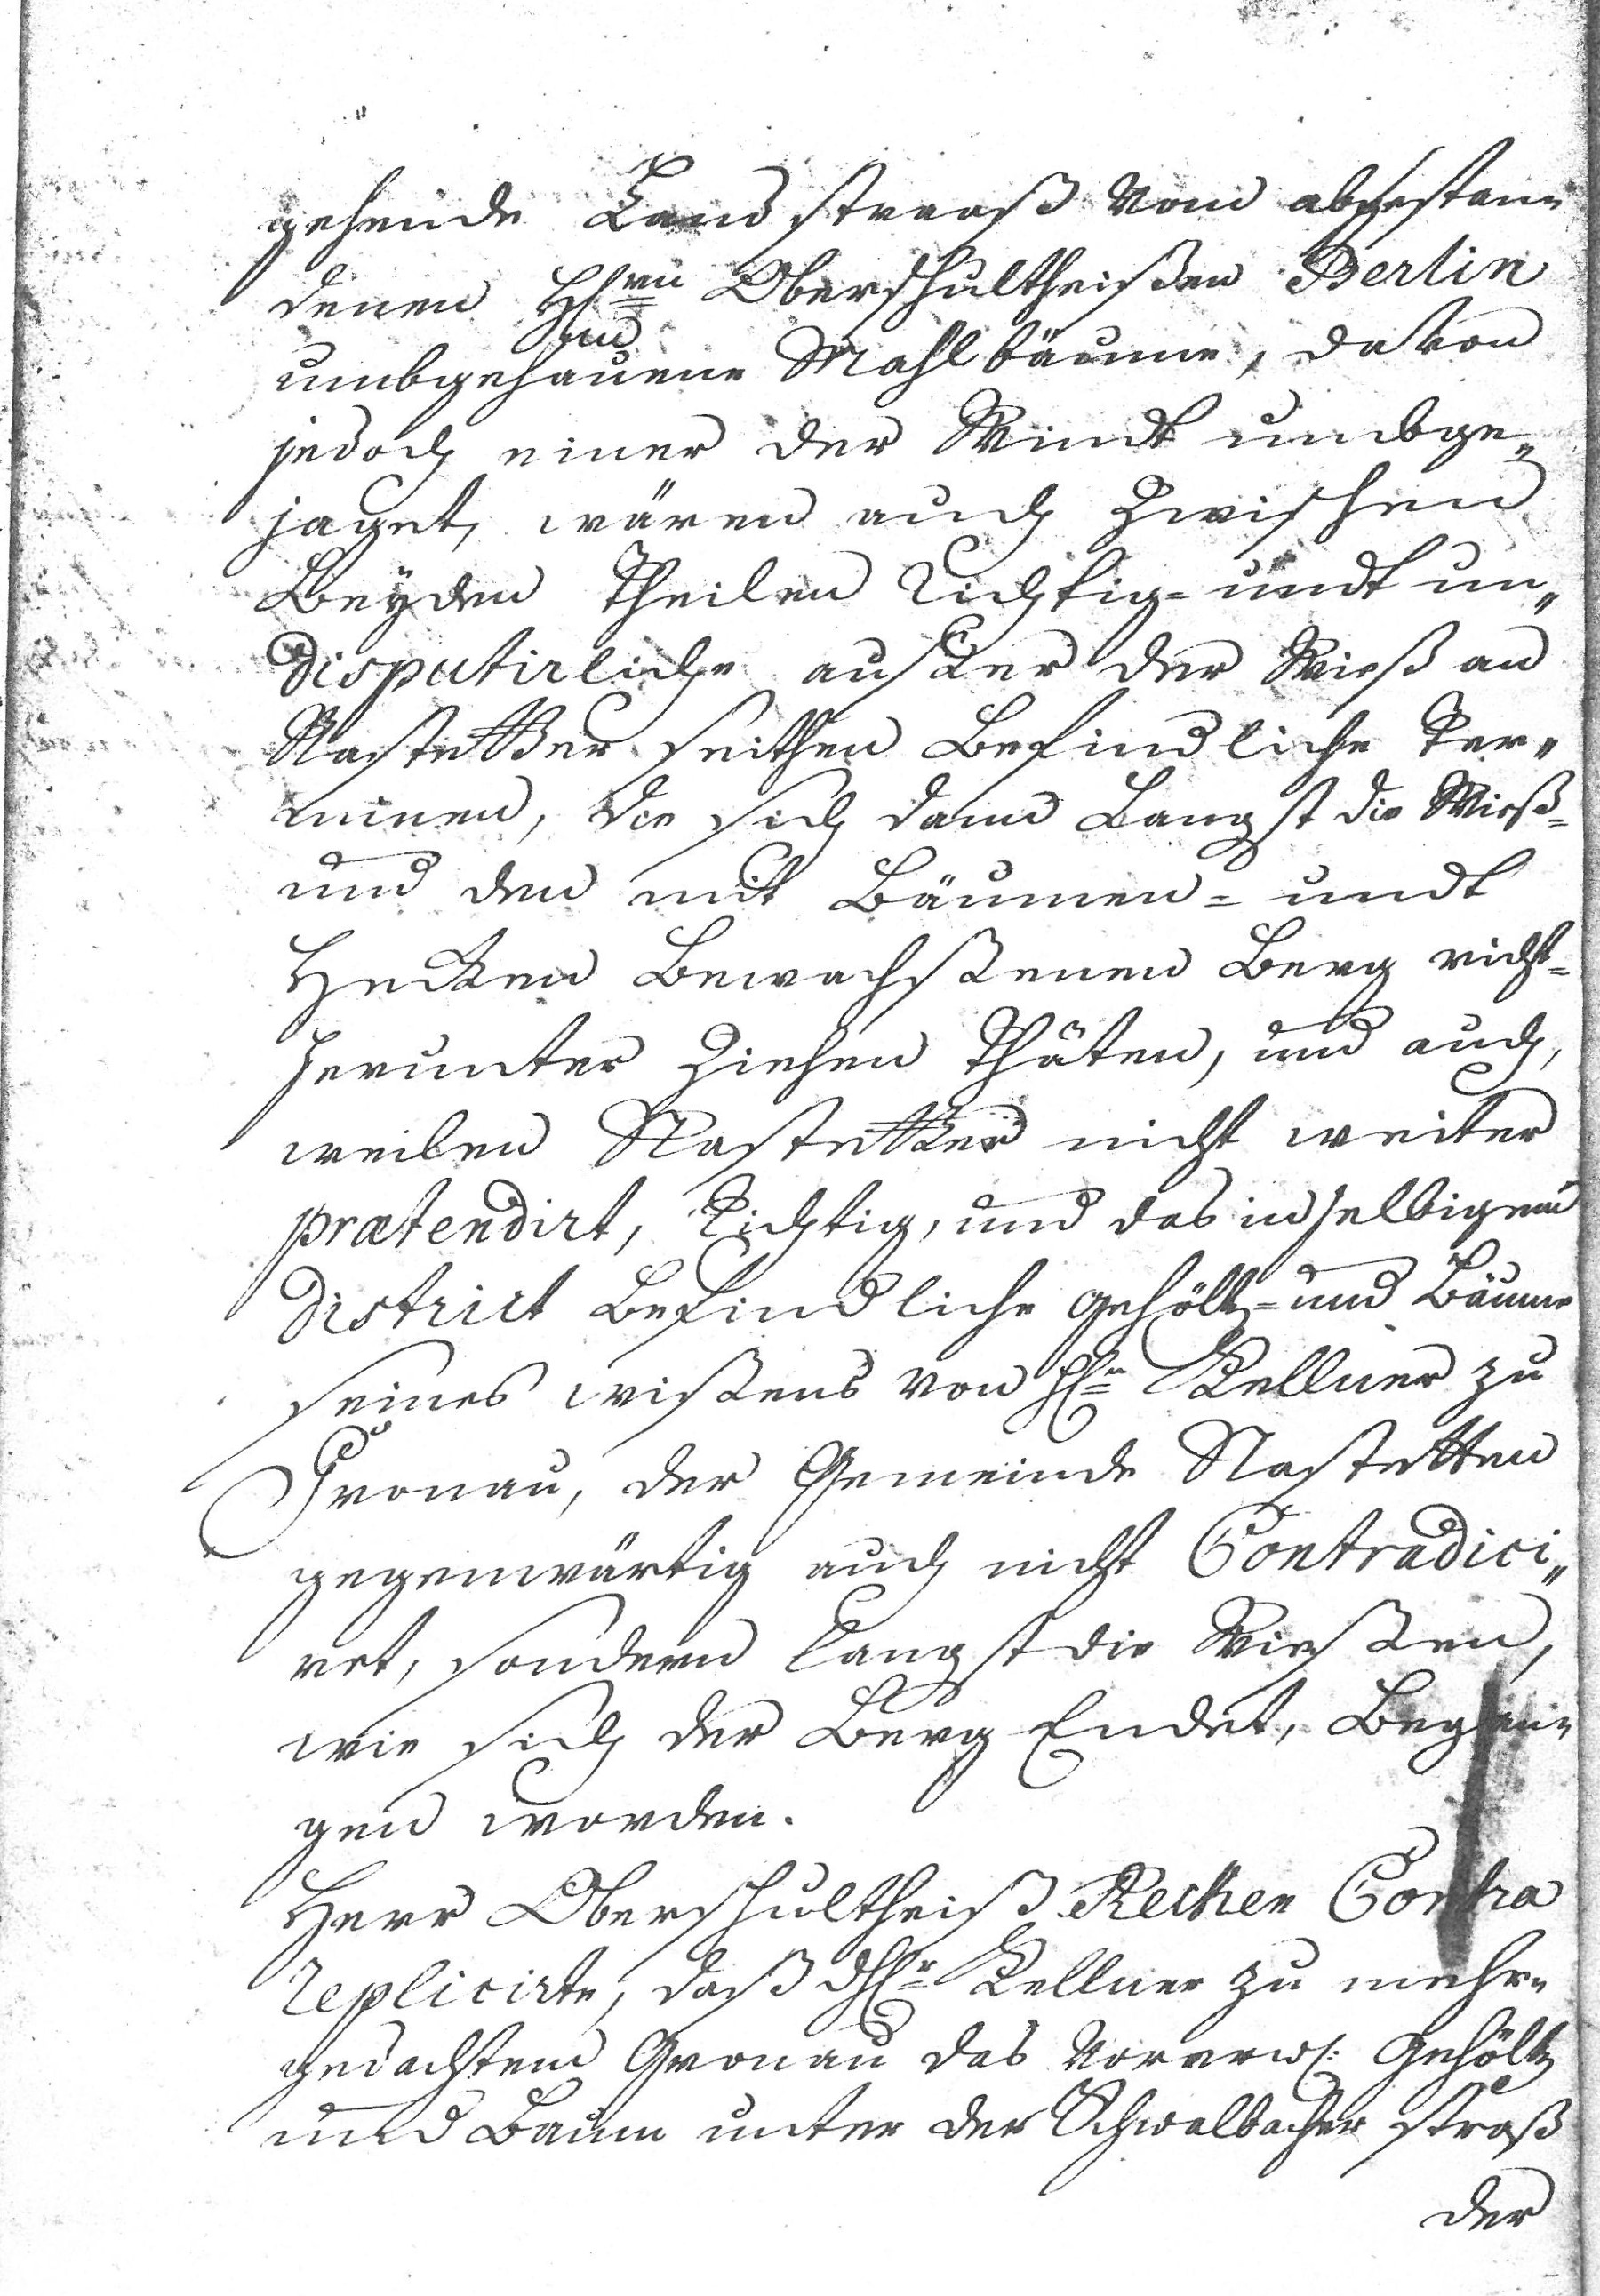 gehende Land straaß vom abgestan„
denen Hhrn Oberschultheißen Berlin
und
umbgehauene Mahlbäume, davon
jedoch einer der Windt umbge„
jaget, wären auch Zwischen
Beÿden Theilen Richtig= undt un„
disputirliche ausser der Wieß an
Nastetter seithen Befindliche Ter„
minen, die sich dann Langst die Wieß=
und den mit Bäumen= undt
Hecken Bewachssenen Berg
herunter Ziehen Thäten, und auch,
weilen Nastetten nicht weiter
prætendirt, Richtig, und das in selbigem
District Befindliche gehöltz= und Bäume
seines wissens von Hr Kellner zu
Gronau, der Gemeinde Nastetten
gegenwärtig auch nicht Contradici„
ret, sondern Langst die Wiessen,
wie sich der Berg Endet, Began„
gen worden.
Herr Oberschultheiß Recken Contra
replicirte, daß Hr Kellner zu mehr„
gedachtem Gronau das Vorerw: Gehöltz
und Baum unter der Schwalbacher straß
der